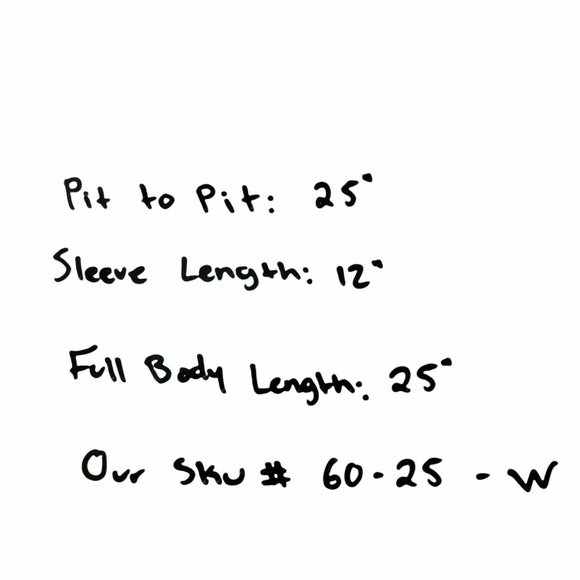 Pit to Pit: 25"
Sleeve Length: 12"
Full Body Length: 25"
Our Sku # 60-25 - W